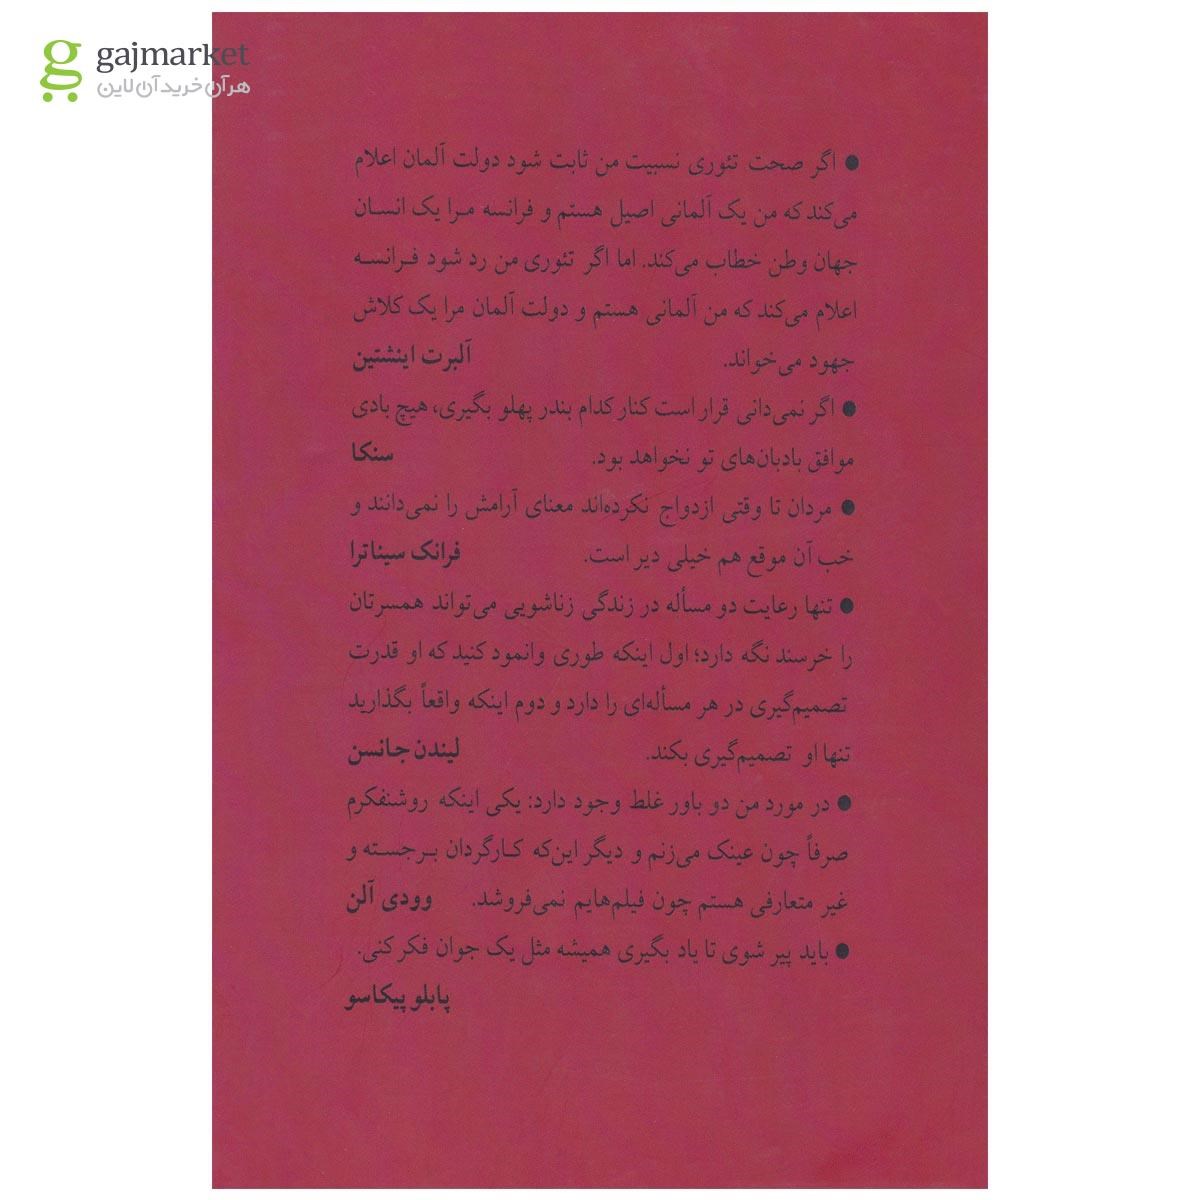 gajmarket
هر آن خرید آن لاین
● اگر صحت تئوری نسبیت من ثابت شود دولت آلمان اعلام
می‌کند که من یک آلمانی اصیل هستم و فرانسه مرا یک انسان
جهان وطن خطاب می‌کند. اما اگر تئوری من رد شود فرانسه
اعلام می‌کند که من آلمانی هستم و دولت آلمان مرا یک کلاش
جهود می‌خواند. آلبرت اینشتین
● اگر نمی‌دانی قرار است کنار کدام بندر پهلو بگیری، هیچ بادی
موافق بادبان‌های تو نخواهد بود. سنکا
● مردان تا وقتی ازدواج نکرده‌اند معنای آرامش را نمی‌دانند و
خب آن موقع هم خیلی دیر است. فرانک سیناترا
● تنها رعایت دو مسأله در زندگی زناشویی می‌تواند همسرتان
را خرسند نگه دارد؛ اول اینکه طوری وانمود کنید که او قدرت
تصمیم‌گیری در هر مسأله‌ای را دارد و دوم اینکه واقعاً بگذارید
تنها او تصمیم‌گیری بکند. لیندن جانسن
● در مورد من دو باور غلط وجود دارد: یکی اینکه روشنفکرم
صرفاً چون عینک می‌زنم و دیگر این‌که کارگردان برجسته و
غیر متعارفی هستم چون فیلم‌هایم نمی‌فروشد. وودی آلن
● باید پیر شوی تا یاد بگیری همیشه مثل یک جوان فکر کنی.
پابلو پیکاسو